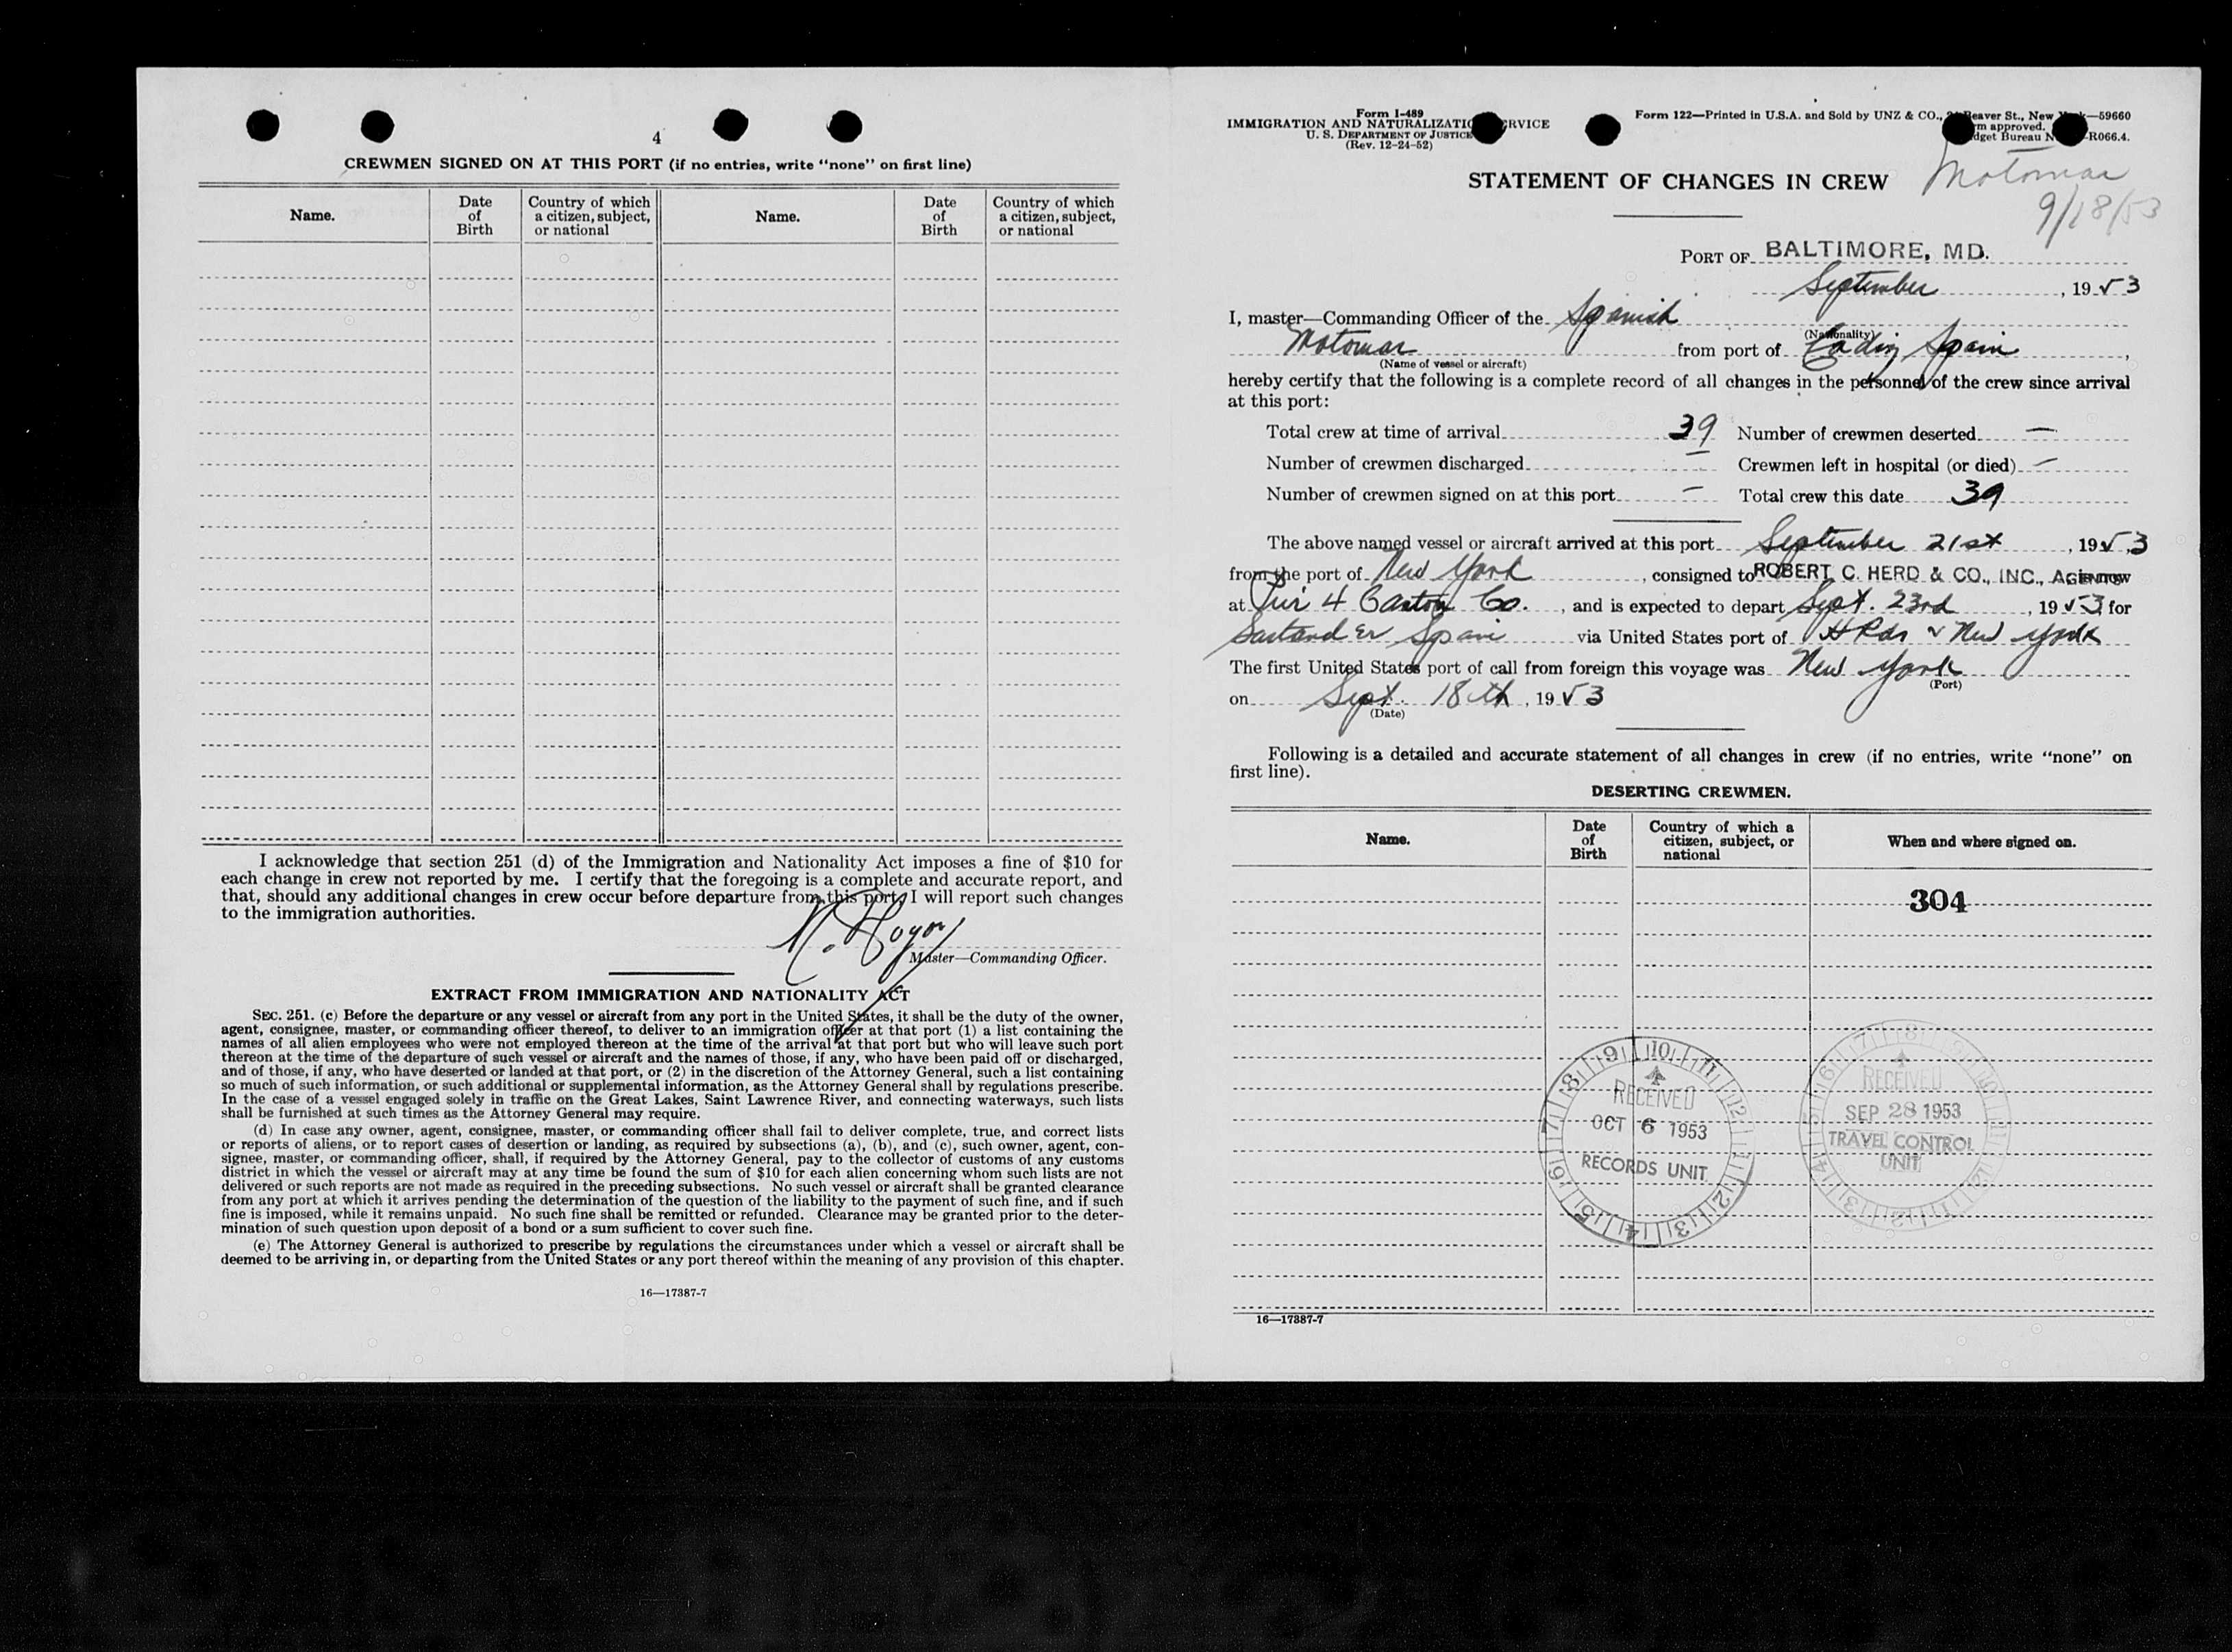 4
CREWMEN SIGNED ON AT THIS PORT (if no entries, write “none” on first line)
Name.
Date of Birth
Country of which a citizen, subject, or national
Name.
Date of Birth
Country of which a citizen, subject, or national
I acknowledge that section 251 (d) of the Immigration and Nationality Act imposes a fine of $10 for
each change in crew not reported by me. I certify that the foregoing is a complete and accurate report, and
that, should any additional changes in crew occur before departure from this port, I will report such changes
to the immigration authorities.
Master—Commanding Officer.
EXTRACT FROM IMMIGRATION AND NATIONALITY ACT
SEC. 251. (c) Before the departure or any vessel or aircraft from any port in the United States, it shall be the duty of the owner,
agent, consignee, master, or commanding officer thereof, to deliver to an immigration officer at that port (1) a list containing the
names of all alien employees who were not employed thereon at the time of the arrival at that port but who will leave such port
thereon at the time of the departure of such vessel or aircraft and the names of those, if any, who have been paid off or discharged,
and of those, if any, who have deserted or landed at that port, or (2) in the discretion of the Attorney General, such a list containing
so much of such information, or such additional or supplemental information, as the Attorney General shall by regulations prescribe.
In the case of a vessel engaged solely in traffic on the Great Lakes, Saint Lawrence River, and connecting waterways, such lists
shall be furnished at such times as the Attorney General may require.
(d) In case any owner, agent, consignee, master, or commanding officer shall fail to deliver complete, true, and correct lists
or reports of aliens, or to report cases of desertion or landing, as required by subsections (a), (b), and (c), such owner, agent, con-
signee, master, or commanding officer, shall, if required by the Attorney General, pay to the collector of customs of any customs
district in which the vessel or aircraft may at any time be found the sum of $10 for each alien concerning whom such lists are not
delivered or such reports are not made as required in the preceding subsections. No such vessel or aircraft shall be granted clearance
from any port at which it arrives pending the determination of the question of the liability to the payment of such fine, and if such
fine is imposed, while it remains unpaid. No such fine shall be remitted or refunded. Clearance may be granted prior to the deter-
mination of such question upon deposit of a bond or a sum sufficient to cover such fine.
(e) The Attorney General is authorized to prescribe by regulations the circumstances under which a vessel or aircraft shall be
deemed to be arriving in, or departing from the United States or any port thereof within the meaning of any provision of this chapter.
16—17387-7
Form I-489
IMMIGRATION AND NATURALIZATION SERVICE
U. S. DEPARTMENT OF JUSTICE
(Rev. 12-24-52)
Form 122—Printed in U.S.A. and Sold by UNZ & CO., Beaver St., New —59660
approved.
Budget Bureau -R066.4.
STATEMENT OF CHANGES IN CREW
Motomar
9/18/53
PORT OF BALTIMORE, MD.
September , 1953
I, master—Commanding Officer of the Spanish
(Nationality)
Motomar from port of Cadiz Spain ,
(Name of vessel or aircraft)
hereby certify that the following is a complete record of all changes in the personnel of the crew since arrival
at this port:
Total crew at time of arrival 39 Number of crewmen deserted —
Number of crewmen discharged — Crewmen left in hospital (or died) —
Number of crewmen signed on at this port — Total crew this date 39
The above named vessel or aircraft arrived at this port September 21st , 1953
from the port of New York , consigned to ROBERT C. HERD & CO., INC., AGENTS is now
at Pier 4 Canton Co. , and is expected to depart Sept. 23rd , 1953 for
Santander Spain via United States port of H Rds & New York
The first United States port of call from foreign this voyage was New York
(Port)
on Sept. 18th , 1953
(Date)
Following is a detailed and accurate statement of all changes in crew (if no entries, write “none” on
first line).
DESERTING CREWMEN.
Name.
Date of Birth
Country of which a citizen, subject, or national
When and where signed on.
304
RECEIVED
OCT 6 1953
RECORDS UNIT
RECEIVED
SEP 28 1953
TRAVEL CONTROL
UNIT
16—17387-7